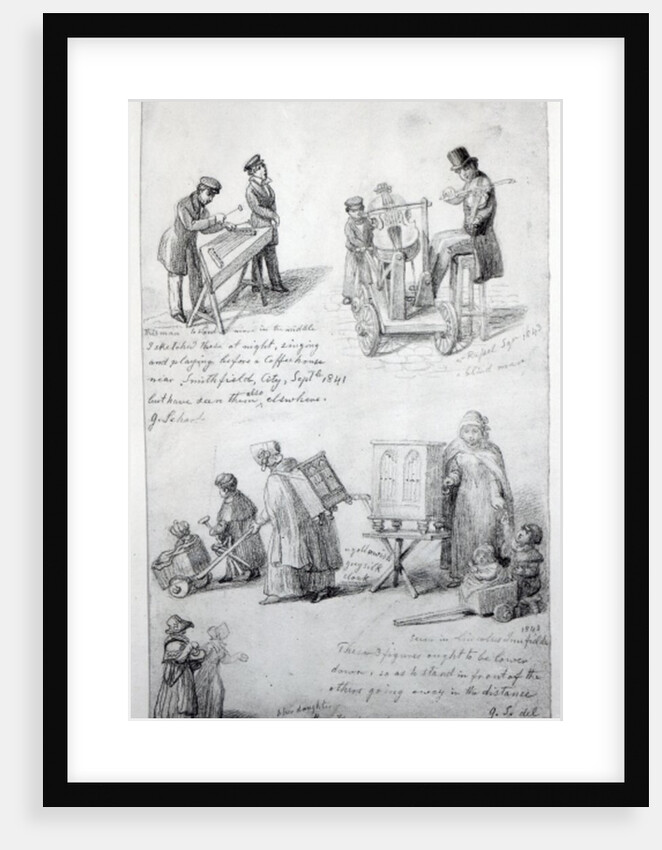 man in the middle
I sketched these at night, singing
and playing before a Coffee house
near Smithfield, City, Septbr 1841
but have seen them also elsewhere.
G. Scharf
Regent Sqr 1843
blind man
yellowish
grey silk
cloak
1843
seen in Lincolns Inn fields
These 3 figures ought to be lower
down, so as to stand in front of the
others going away in the distance
G. S. del
her daughter